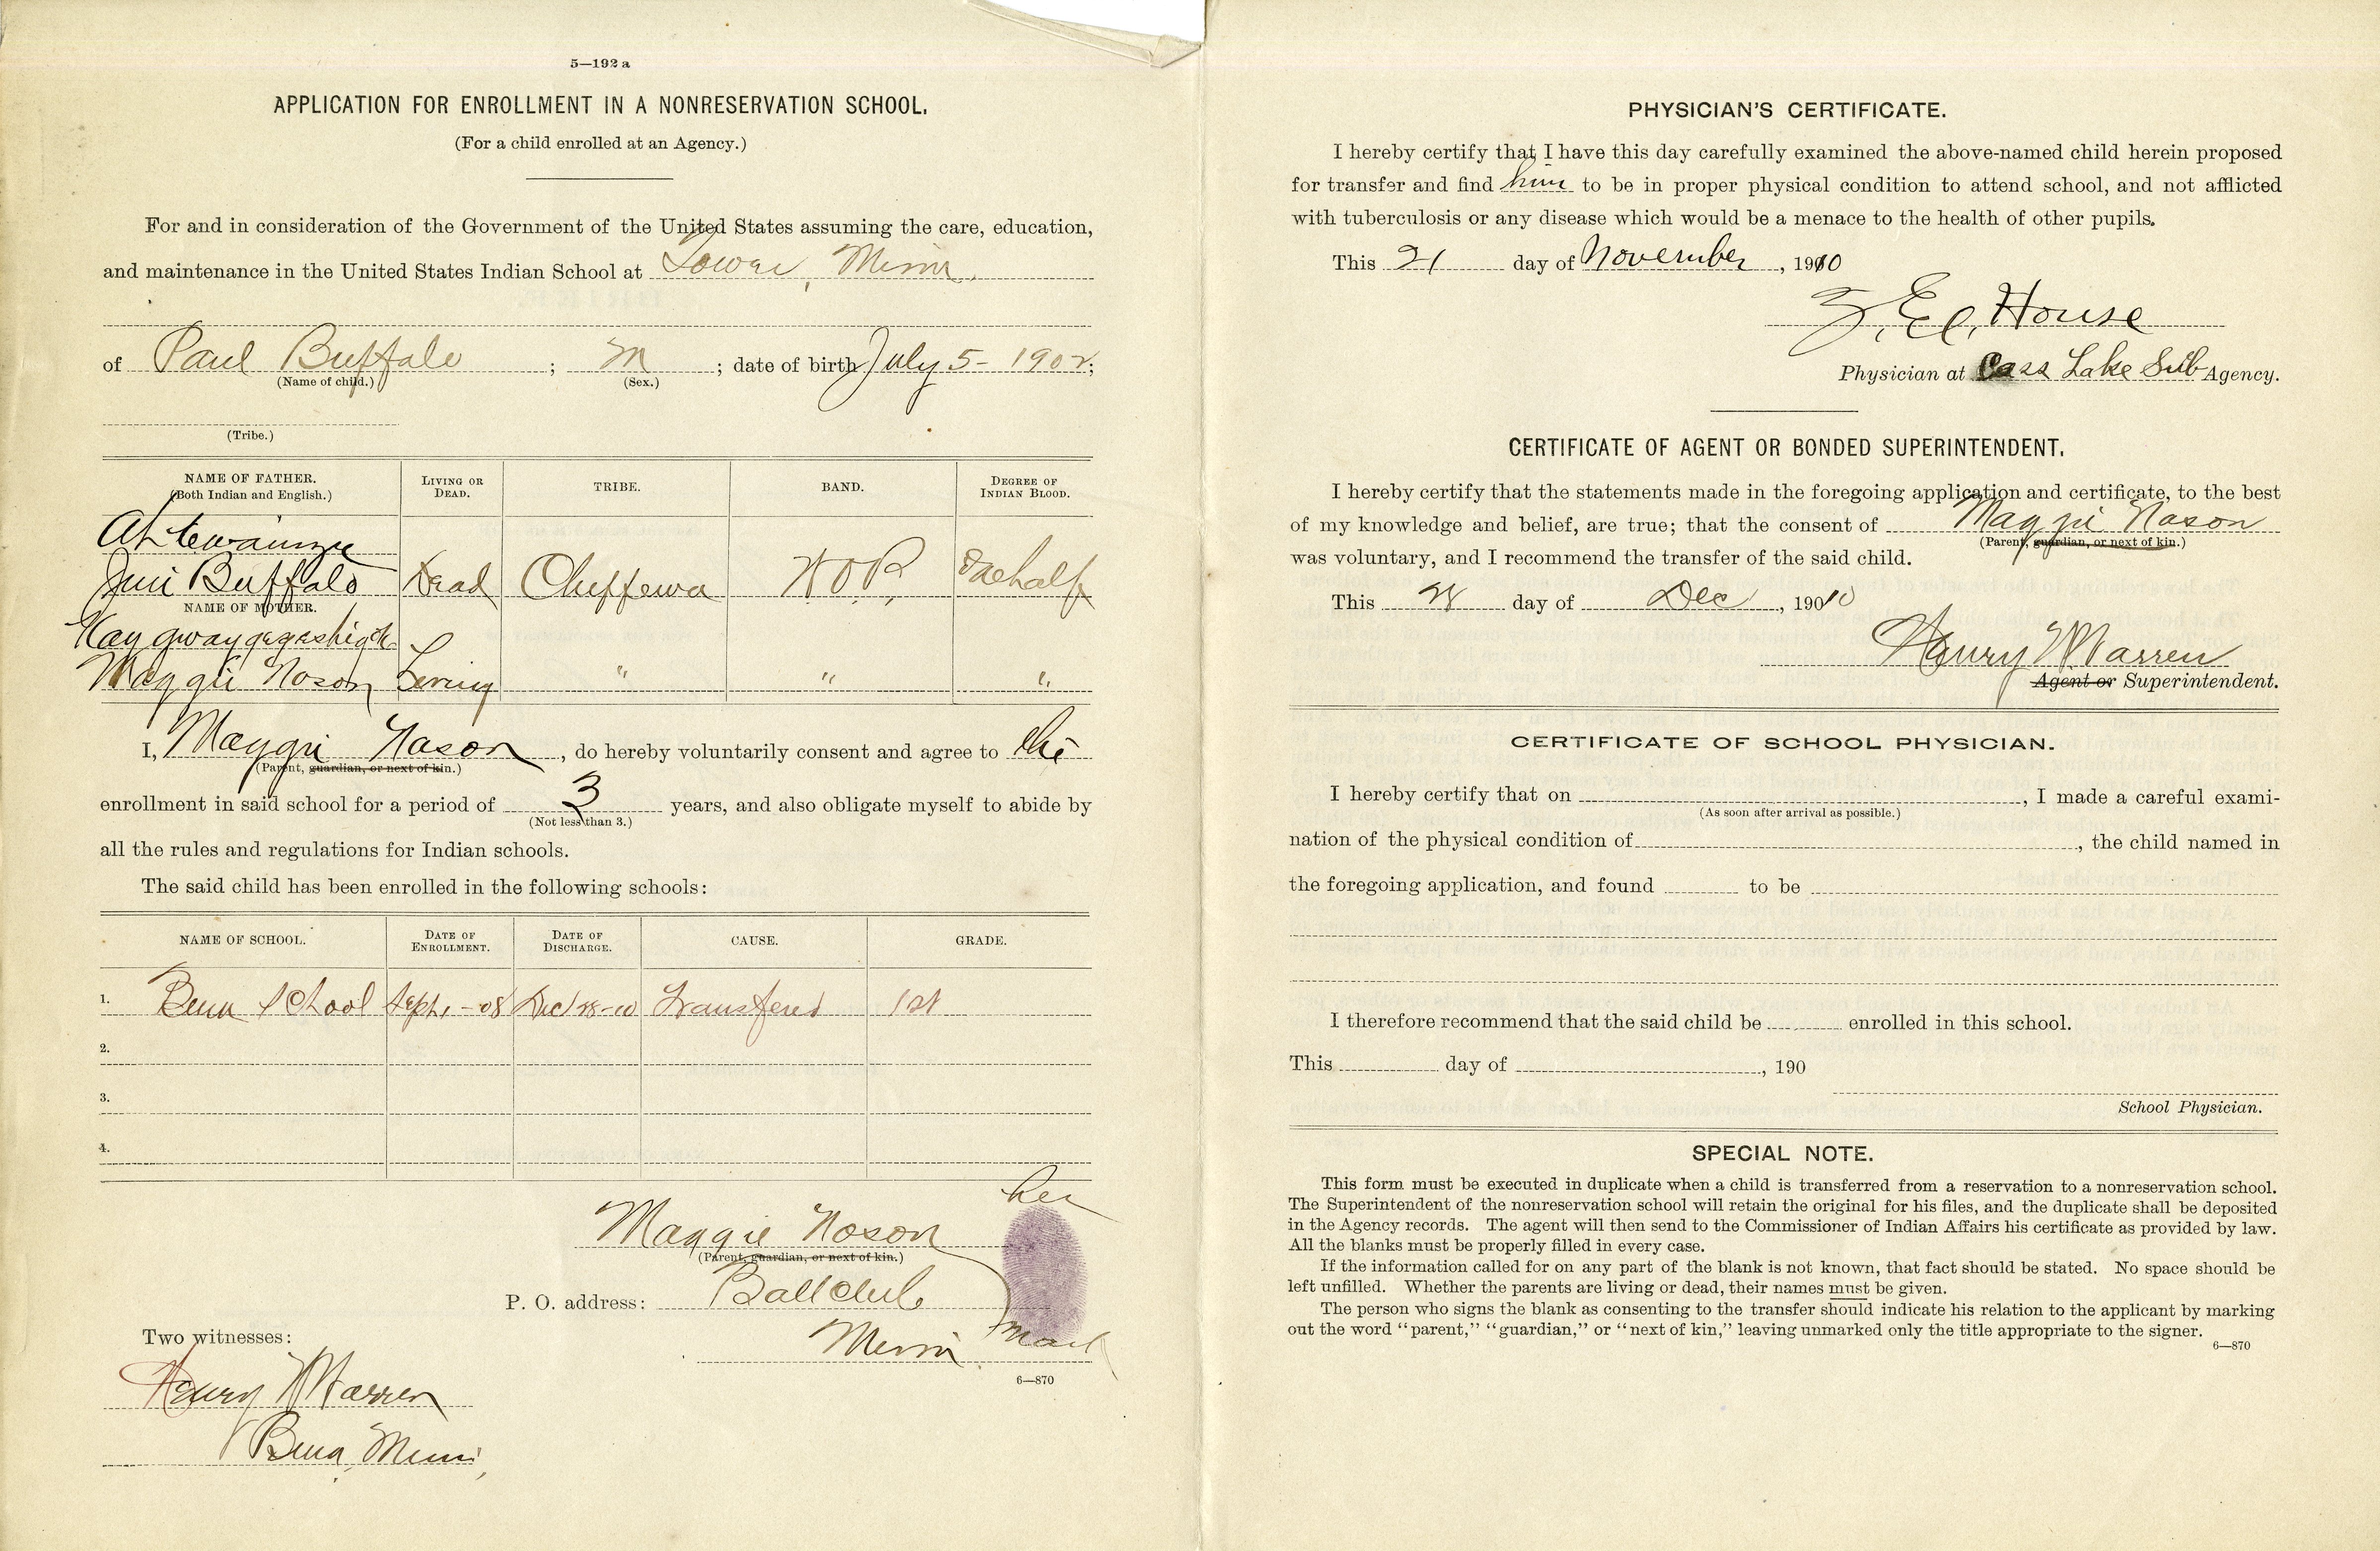 5—192 a
APPLICATION FOR ENROLLMENT IN A NONRESERVATION SCHOOL.
(For a child enrolled at an Agency.)
For and in consideration of the Government of the United States assuming the care, education,
and maintenance in the United States Indian School at Tower, Minn.
of Paul Buffalo ; M ; date of birth July 5- 1902;
(Name of child.) (Sex.)
(Tribe.)
NAME OF FATHER. (Both Indian and English.) LIVING OR DEAD. TRIBE. BAND. DEGREE OF INDIAN BLOOD.
Jim Buffalo Dead Chippewa W.O.P. One half
NAME OF MOTHER.
Maggie Nason Living " " "
I, Maggie Nason, do hereby voluntarily consent and agree to his
(Parent, guardian, or next of kin.)
enrollment in said school for a period of 3 years, and also obligate myself to abide by
(Not less than 3.)
all the rules and regulations for Indian schools.
The said child has been enrolled in the following schools:
NAME OF SCHOOL. DATE OF ENROLLMENT. DATE OF DISCHARGE. CAUSE. GRADE.
1. Bena School Sept. 1-08 Dec 28-10 Transfered 1st
2.
3.
4.
her
Maggie Noson
(Parent, guardian, or next of kin.)
P. O. address: Ballclub
Minn mark
Two witnesses:
6—870
Henry W Warren
Bena, Minn,
PHYSICIAN'S CERTIFICATE.
I hereby certify that I have this day carefully examined the above-named child herein proposed
for transfer and find him to be in proper physical condition to attend school, and not afflicted
with tuberculosis or any disease which would be a menace to the health of other pupils.
This 21 day of November, 1910
House
Physician at Cass Lake Sub Agency.
CERTIFICATE OF AGENT OR BONDED SUPERINTENDENT.
I hereby certify that the statements made in the foregoing application and certificate, to the best
of my knowledge and belief, are true; that the consent of Maggie Nason
(Parent, guardian, or next of kin.)
was voluntary, and I recommend the transfer of the said child.
This 28 day of Dec, 19010
Henry W Warren
Agent or Superintendent.
CERTIFICATE OF SCHOOL PHYSICIAN.
I hereby certify that on , I made a careful exami-
(As soon after arrival as possible.)
nation of the physical condition of , the child named in
the foregoing application, and found to be
I therefore recommend that the said child be enrolled in this school.
This day of , 190
School Physician.
SPECIAL NOTE.
This form must be executed in duplicate when a child is transferred from a reservation to a nonreservation school.
The Superintendent of the nonreservation school will retain the original for his files, and the duplicate shall be deposited
in the Agency records. The agent will then send to the Commissioner of Indian Affairs his certificate as provided by law.
All the blanks must be properly filled in every case.
If the information called for on any part of the blank is not known, that fact should be stated. No space should be
left unfilled. Whether the parents are living or dead, their names must be given.
The person who signs the blank as consenting to the transfer should indicate his relation to the applicant by marking
out the word "parent," "guardian," or "next of kin," leaving unmarked only the title appropriate to the signer.
6—870